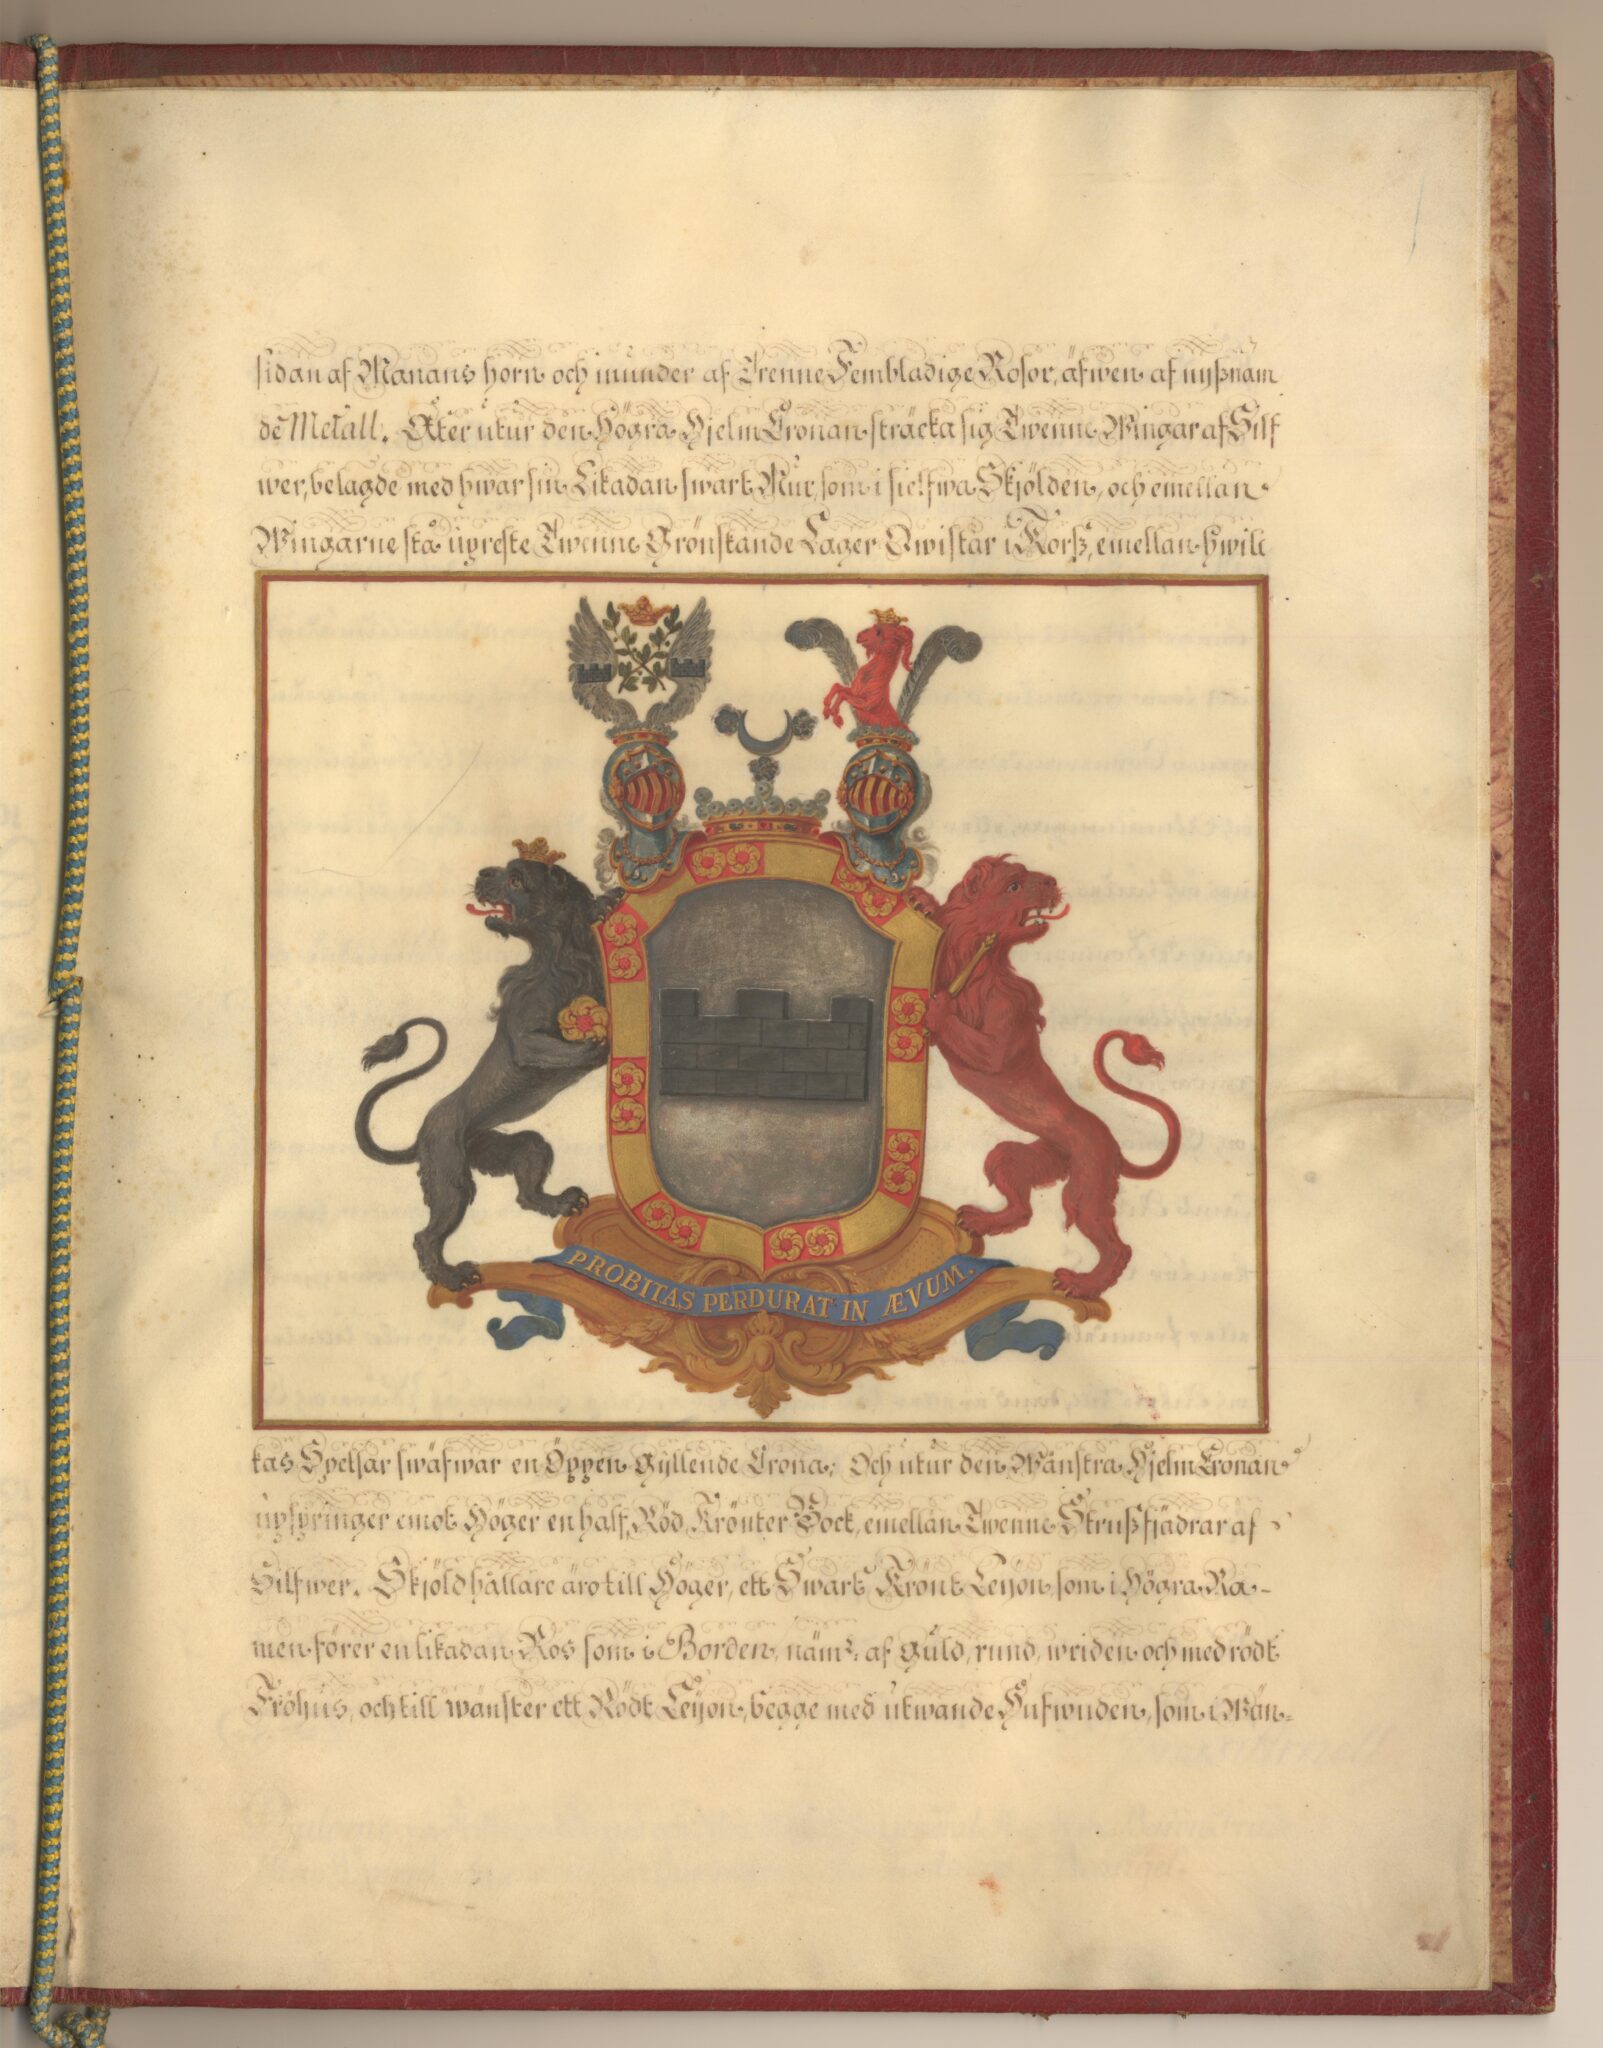 sidan af Månans horn och inunder af Trenne Fembladige Rosor, äfwen af nyßnäm
de Metall. Åter utur den Högra Hjelm Cronan sträcka sig Twenne Wingar af Silf
wer, belagde med hwar sin Likadan swart Mur, som i sielfwa Skjölden, och emellan
Wingarne stå upreste Twenne Grönskande Lager Qwistar i Korß, emellan hwil
PROBITAS PERDURAT IN ÆVUM.
kas Spetsar swäfwar en Öppen Gyllende Crona; Och utur den Wänstra Hjelm Cronan
upspringer emot Höger en half, Röd Krönter Bock, emellan Twenne Strußfjädrar af
Silfwer. Skjöldhållare äro till Höger, ett Swart, Krönt Leijon, som i Högra Ra-
men förer en likadan Ros som i Borden, näml: af Guld, rund, wriden och med rödt
Fröhus, och till wänster ett Rödt Leijon, begge med utwände Hufwuden, som i Wän=